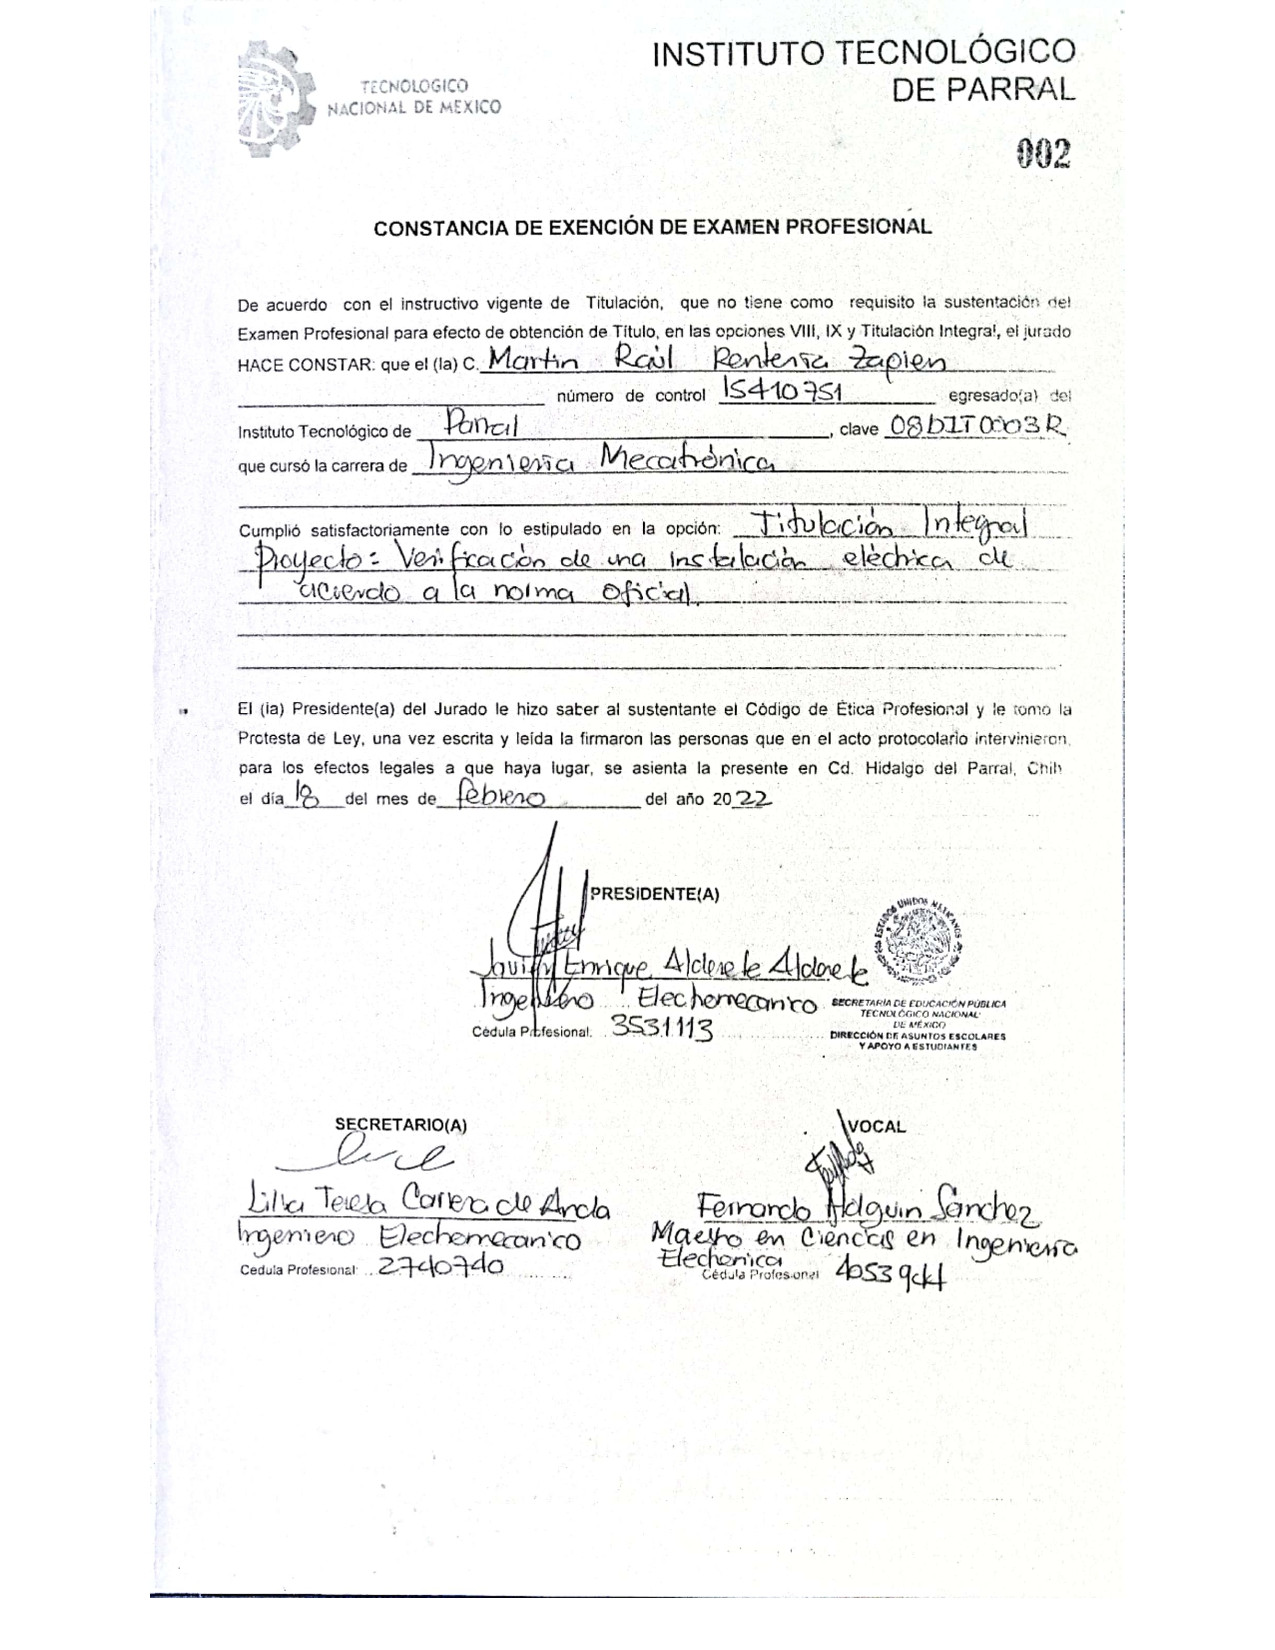 TECNOLOGICO
NACIONAL DE MEXICO
INSTITUTO TECNOLÓGICO
DE PARRAL
002
CONSTANCIA DE EXENCIÓN DE EXAMEN PROFESIONAL
De acuerdo con el instructivo vigente de Titulación, que no tiene como requisito la sustentación del
Examen Profesional para efecto de obtención de Título, en las opciones VIII, IX y Titulación Integral, el jurado
HACE CONSTAR: que el (la) C. Martin Raúl Rentería Zapien
número de control 15410751 egresado(a) del
Instituto Tecnológico de Parral, clave 08DIT0003R
que cursó la carrera de Ingeniería Mecatrónica
Cumplió satisfactoriamente con lo estipulado en la opción: Titulación Integral
Proyecto: Verificación de una instalación eléctrica de
acuerdo a la norma oficial.
El (la) Presidente(a) del Jurado le hizo saber al sustentante el Código de Ética Profesional y le tomo la
Protesta de Ley, una vez escrita y leída la firmaron las personas que en el acto protocolario intervinieron,
para los efectos legales a que haya lugar, se asienta la presente en Cd. Hidalgo del Parral, Chih
el día 18 del mes de febrero del año 2022
PRESIDENTE(A)
Javier Enrique Alderete Alderete
Ingeniero Electromecanico
Cédula Profesional. 3531113
ESTADOS UNIDOS MEXICANOS
SECRETARÍA DE EDUCACIÓN PÚBLICA
TECNOLÓGICO NACIONAL
DE MÉXICO
DIRECCIÓN DE ASUNTOS ESCOLARES
Y APOYO A ESTUDIANTES
SECRETARIO(A)
Lilia Teresa Carrera de Anda
Ingeniero Electromecanico
Cedula Profesional: 2740740
VOCAL
Fernando Holguin Sánchez
Maestro en Ciencias en Ingeniería
Electronica
Cédula Profesional